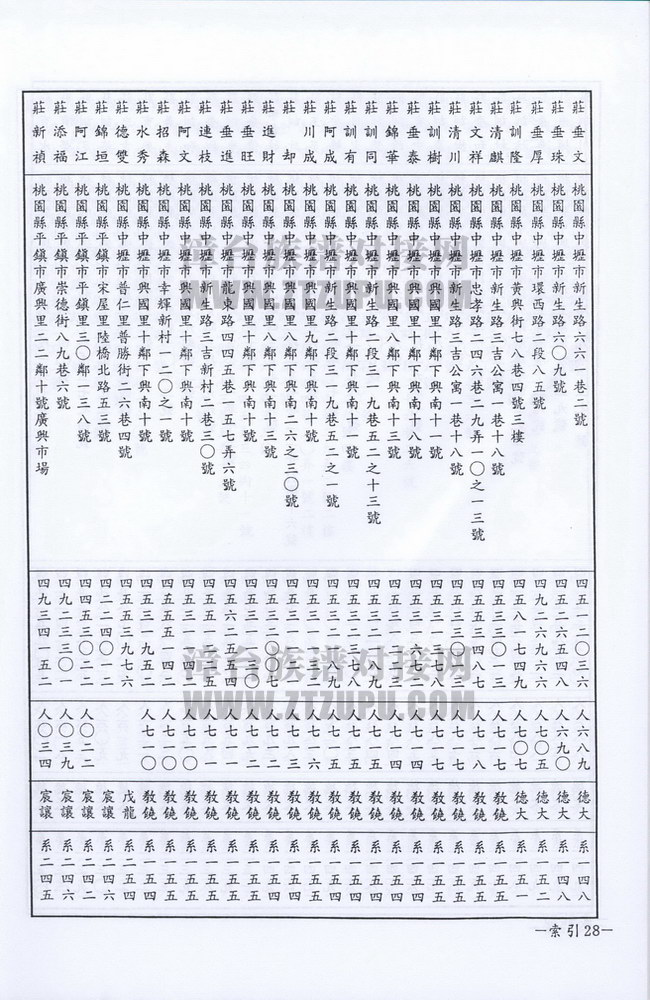 莊垂文 桃園縣中壢市新生路六六一巷二號 四五一二〇三六 人六八九 德大 系一四八
莊垂珠 桃園縣中壢市新生路六〇九號 四五二六五四八 人六九〇 德大 系一四八
莊垂厚 桃園縣中壢市環西路二段八五號 四九二六九六六 人七〇五 德大 系一五二
莊訓隆 桃園縣中壢市黃興街七八巷四號三樓 四五八一七四九 人七〇七 德大 系一五一
莊清麒 桃園縣中壢市新生路三吉公寓一巷十八號 四五三三〇一三 人七一七 教鐃 系一五五
莊文祥 桃園縣中壢市忠孝路二四六巷二九弄一〇之一三號 四五五三四八七 人七一八 教鐃 系一五五
莊清川 桃園縣中壢市新生路三吉公寓一巷十八號 人七一七 教鐃 系一五五
莊訓樹 桃園縣中壢市興國里十鄰下興南十一號 人七一七 教鐃 系一五五
莊垂泰 桃園縣中壢市興國里十鄰下興南十一號 人七一七 教鐃 系一五五
莊錦華 桃園縣中壢市興國里八鄰下興南十三號 人七一四 教鐃 系一五四
莊訓同 桃園縣中壢市新生路二段三一九巷五二之十三號 人七一四 教鐃 系一五四
莊訓有 桃園縣中壢市興國里十鄰下興南十一號 人七一五 教鐃 系一五四
莊阿成 桃園縣中壢市新生路二段三一九巷五二之一號 人七一五 教鐃 系一五四
莊川成 桃園縣中壢市興國里九鄰下興南十號 人七一六 教鐃 系一五四
莊却 桃園縣中壢市興國里八鄰下興南二六之三〇號 人七一三 教鐃 系一五四
莊進財 桃園縣中壢市興國里八鄰下興南十三號 人七一三 教鐃 系一五四
莊垂旺 桃園縣中壢市興國里十鄰下興南十號 人七一二 教鐃 系一五四
莊垂進 桃園縣中壢市龍東路四四五巷一五七弄六號 人七一一 教鐃 系一五四
莊連枝 桃園縣中壢市新生路三吉新村二巷三〇號 人七一一 教鐃 系一五四
莊阿文 桃園縣中壢市興國里十鄰下興南十號 人七一〇 教鐃 系一五四
莊招森 桃園縣中壢市幸輝新村一二〇之一號 四五五五一四二 人七一〇 教鐃 系一五四
莊水秀 桃園縣中壢市興國里十鄰下興南十號 四五三一九五二 人七一〇 教鐃 系一五四
莊德雙 桃園縣中壢市普仁里普勝街二六巷四號 四五五三九七六 戊龍 系二五四
莊錦垣 桃園縣平鎮市宋屋里陸橋北路五三號 四二二四〇一二 宸讓 系二四六
莊阿江 桃園縣平鎮市平鎮里三〇鄰一三八號 四四五三〇二二 人〇二二 宸讓 系二四二
莊添福 桃園縣平鎮市崇德街八九巷六號 四九二三三〇一 人〇三九 宸讓 系二四六
莊新禎 桃園縣平鎮市廣興里二二鄰十號廣興市場 四九三四一五二 人〇三四 宸讓 系二四五
漳台族谱对接网
WWW.ZTZUPU.COM
漳台族谱对接网
WWW.ZTZUPU.COM
－索引28－